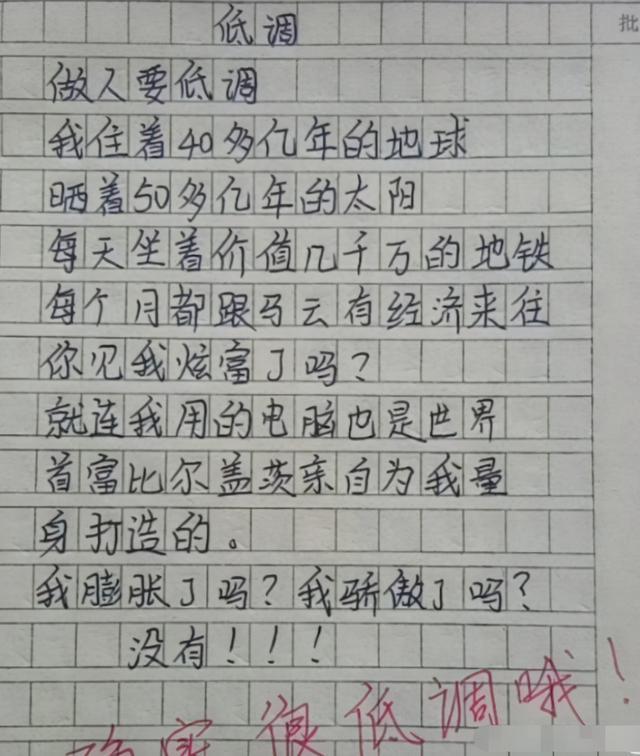 批
低调
做人要低调
我住着40多亿年的地球
晒着50多亿年的太阳
每天坐着价值几千万的地铁
每个月都跟马云有经济来往
你见我炫富了吗？
就连我用的电脑也是世界
首富比尔盖茨亲自为我量
身打造的。
我膨胀了吗？我骄傲了吗？
没有！！！
确实很低调哦！